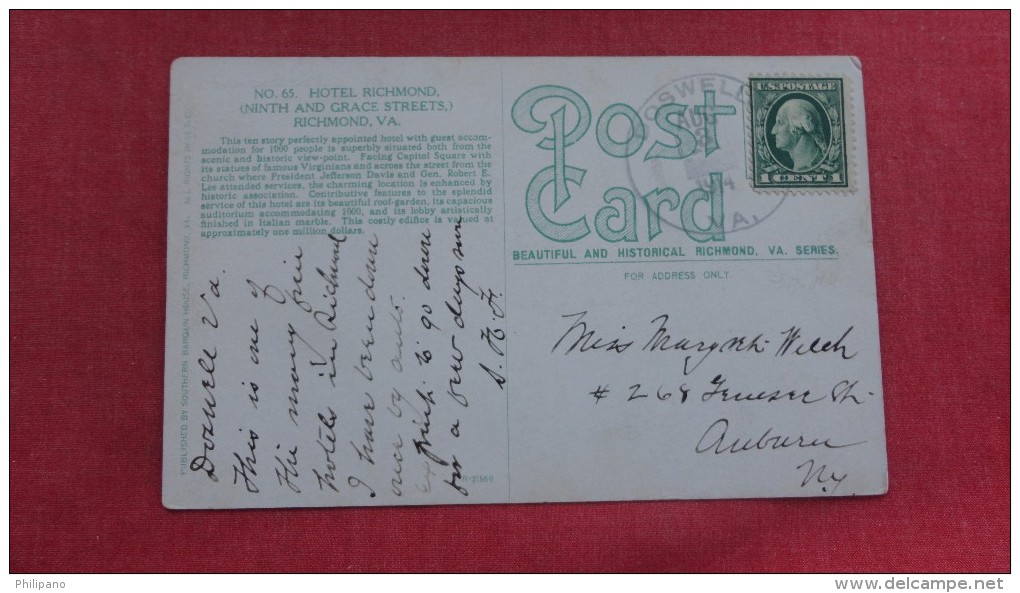 NO. 65. HOTEL RICHMOND,
(NINTH AND GRACE STREETS,)
RICHMOND, VA.
This ten story perfectly appointed hotel with guest accom-
modation for 1000 people is superbly situated both from the
scenic and historic view-point. Facing Capitol Square with
its statues of famous Virginians and across the street from the
church where President Jefferson Davis and Gen. Robert E.
Lee attended services, the charming location is enhanced by
historic association. Contributive features to the splendid
service of this hotel are its beautiful roof-garden, its capacious
auditorium accommodating 1000, and its lobby artistically
finished in Italian marble. This costly edifice is valued at
approximately one million dollars.
PUBLISHED BY SOUTHERN BARGAIN HOUSE, RICHMOND, VA.
Doswell Va.
This is one of
the many fine
hotels in Richmond
I have been down
once by auto.
expect to go down
for a few days soon
S. H. H.
Post
Card
BEAUTIFUL AND HISTORICAL RICHMOND, VA. SERIES.
FOR ADDRESS ONLY.
DOSWELL
AUG
1914
VA.
U.S. POSTAGE
1 CENT 1
Miss Margret Welch
# 268 Genesee St.
Auburn
N.Y.
Philipano
www.delcampe.net